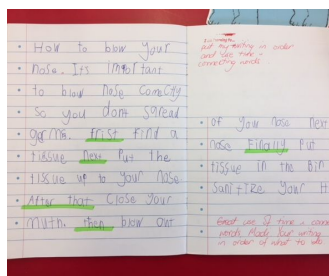 How to blow your
nose. Its important
to blow nose Correctly
so you dont spread
germs. frist find a
tissue next Put the
tissue up to your nose
After that Close your
muth. then blow out
put my writing in order
and use time -
connecting words
of your nose Next
nose Finally Put
tissue in the Bin
Sanitize your H
Great use of time - conne
words Mady. Your writing
in order of what to